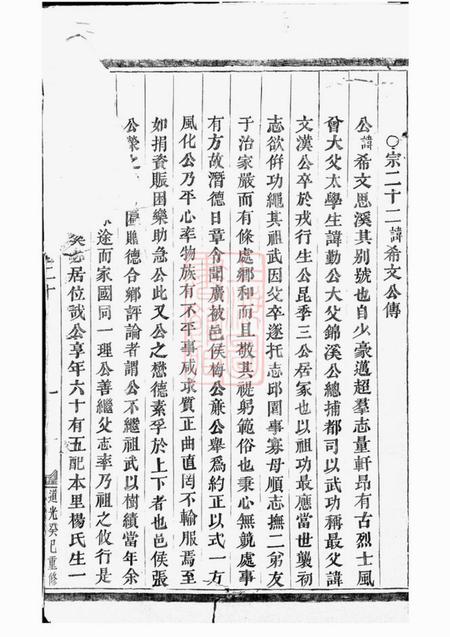 ○宗二十二諱希文公傳
公諱希文恩溪其别號也自少豪邁超羣志量軒昂有古烈士風
曾大父太學生諱勤公大父錦溪公總捕都司以武功稱最父諱
文漢公卒於戎行生公昆季三公居冢也以祖功最應當世襲初
志欲併功繩其祖武因父卒遂托志邱園事寡母順志撫二弟友
于治家嚴而有條處鄉和而且敬其禔躬範俗也秉心無競處事
有方故潛德日章令聞廣被邑侯梅公亷公舉爲約正以式一方
風化公乃平心率物族有不平事咸求質正曲直罔不輸服焉至
如捐資賑困樂助急公此又公之懋德素孚於上下者也邑侯張
公榮之
匾雕德合鄉評論者謂公不繼祖武以樹績當年余
途而家國同一理公善繼父志率乃祖之攸行是
居位哉公享年六十有五配本里楊氏生一
二十
一
道光癸巳重修